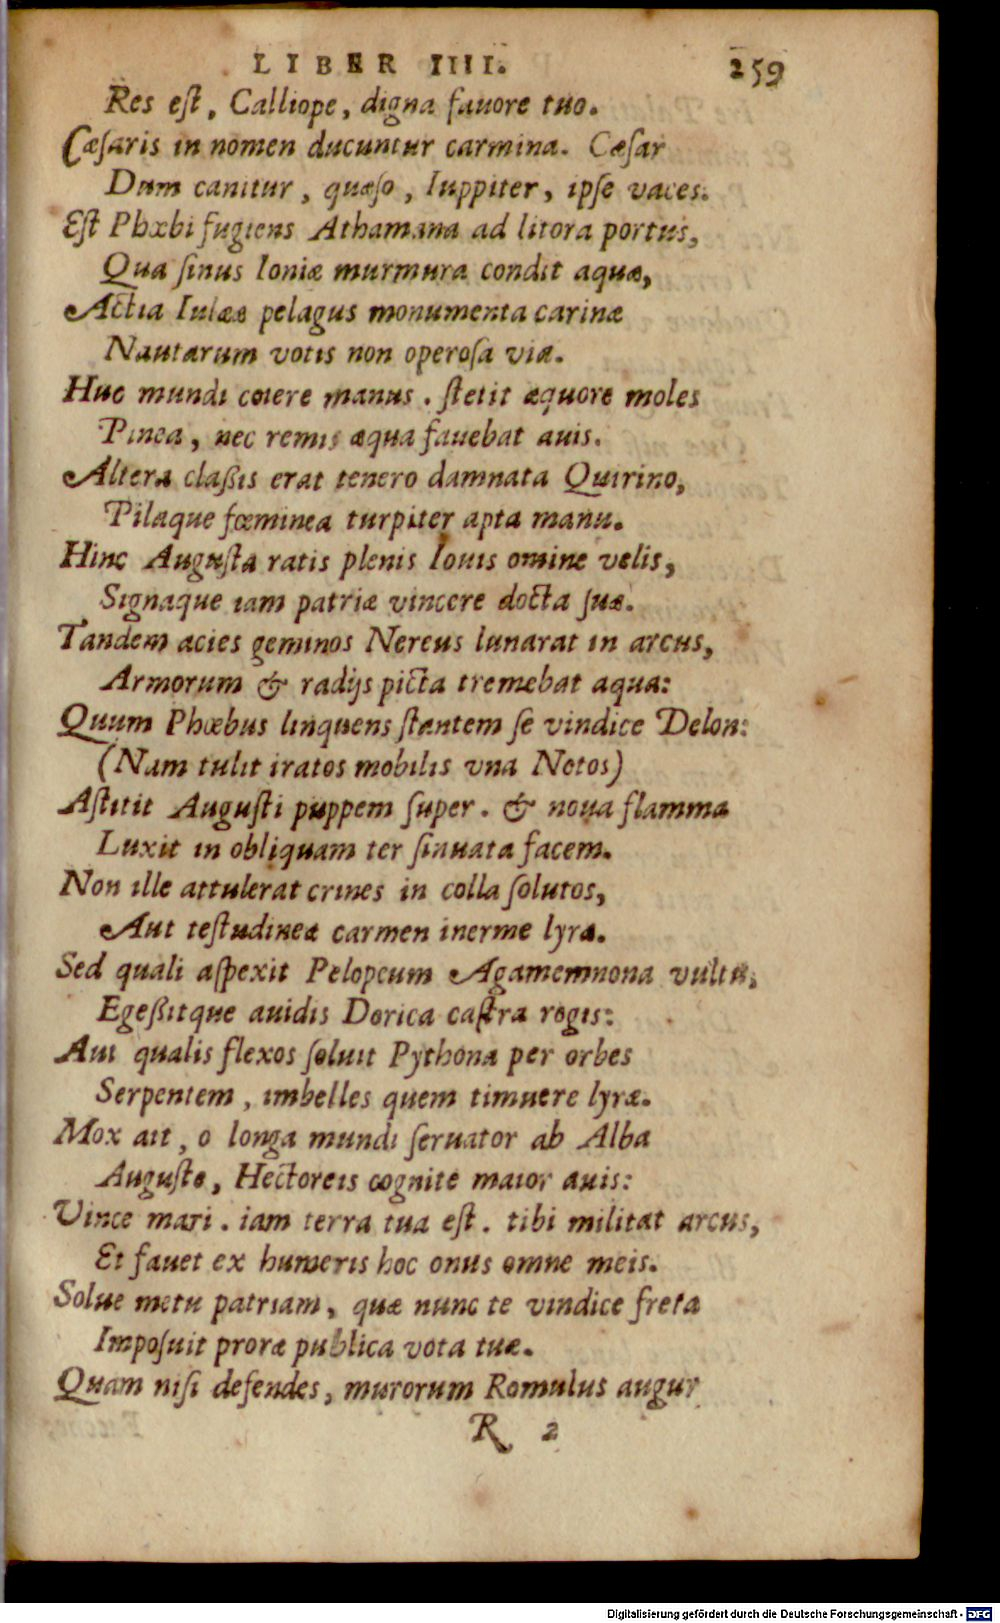 LIBER IIII. 259
Res eſt, Calliope, digna fauore tuo.
Cæſaris in nomen ducuntur carmina. Cæſar
Dum canitur, quæſo, Iuppiter, ipſe vaces.
Eſt Phœbi fugiens Athamana ad litora portus,
Qua ſinus Ioniæ murmura condit aquæ,
Actia Iulææ pelagus monumenta carinæ
Nautarum votis non operoſa via.
Huc mundi coiere manus. ſtetit æquore moles
Pinea, nec remis æqua fauebat auis.
Altera claßis erat tenero damnata Quirino,
Pilaque fœminea turpiter apta manu.
Hinc Auguſta ratis plenis Iouis omine velis,
Signaque iam patriæ vincere docta ſuæ.
Tandem acies geminos Nereus lunarat in arcus,
Armorum & radijs picta tremebat aqua:
Quum Phœbus linquens ſtantem ſe vindice Delon:
(Nam tulit iratos mobilis vna Notos)
Aſtitit Auguſti puppem ſuper. & noua flamma
Luxit in obliquam ter ſinuata facem.
Non ille attulerat crines in colla ſolutos,
Aut teſtudineæ carmen inerme lyræ.
Sed quali aſpexit Pelopeum Agamemnona vultu,
Egeßitque auidis Dorica caſtra rogis:
Aut qualis flexos ſoluit Pythona per orbes
Serpentem, imbelles quem timuere lyræ.
Mox ait, o longa mundi ſeruator ab Alba
Auguſte, Hectoreis cognite maior auis:
Vince mari. iam terra tua eſt. tibi militat arcus,
Et fauet ex humeris hoc onus omne meis.
Solue metu patriam, quæ nunc te vindice freta
Impoſuit proræ publica vota tuæ.
Quam niſi defendes, murorum Romulus augur
R 2
Digitalisierung gefördert durch die Deutsche Forschungsgemeinschaft - DFG